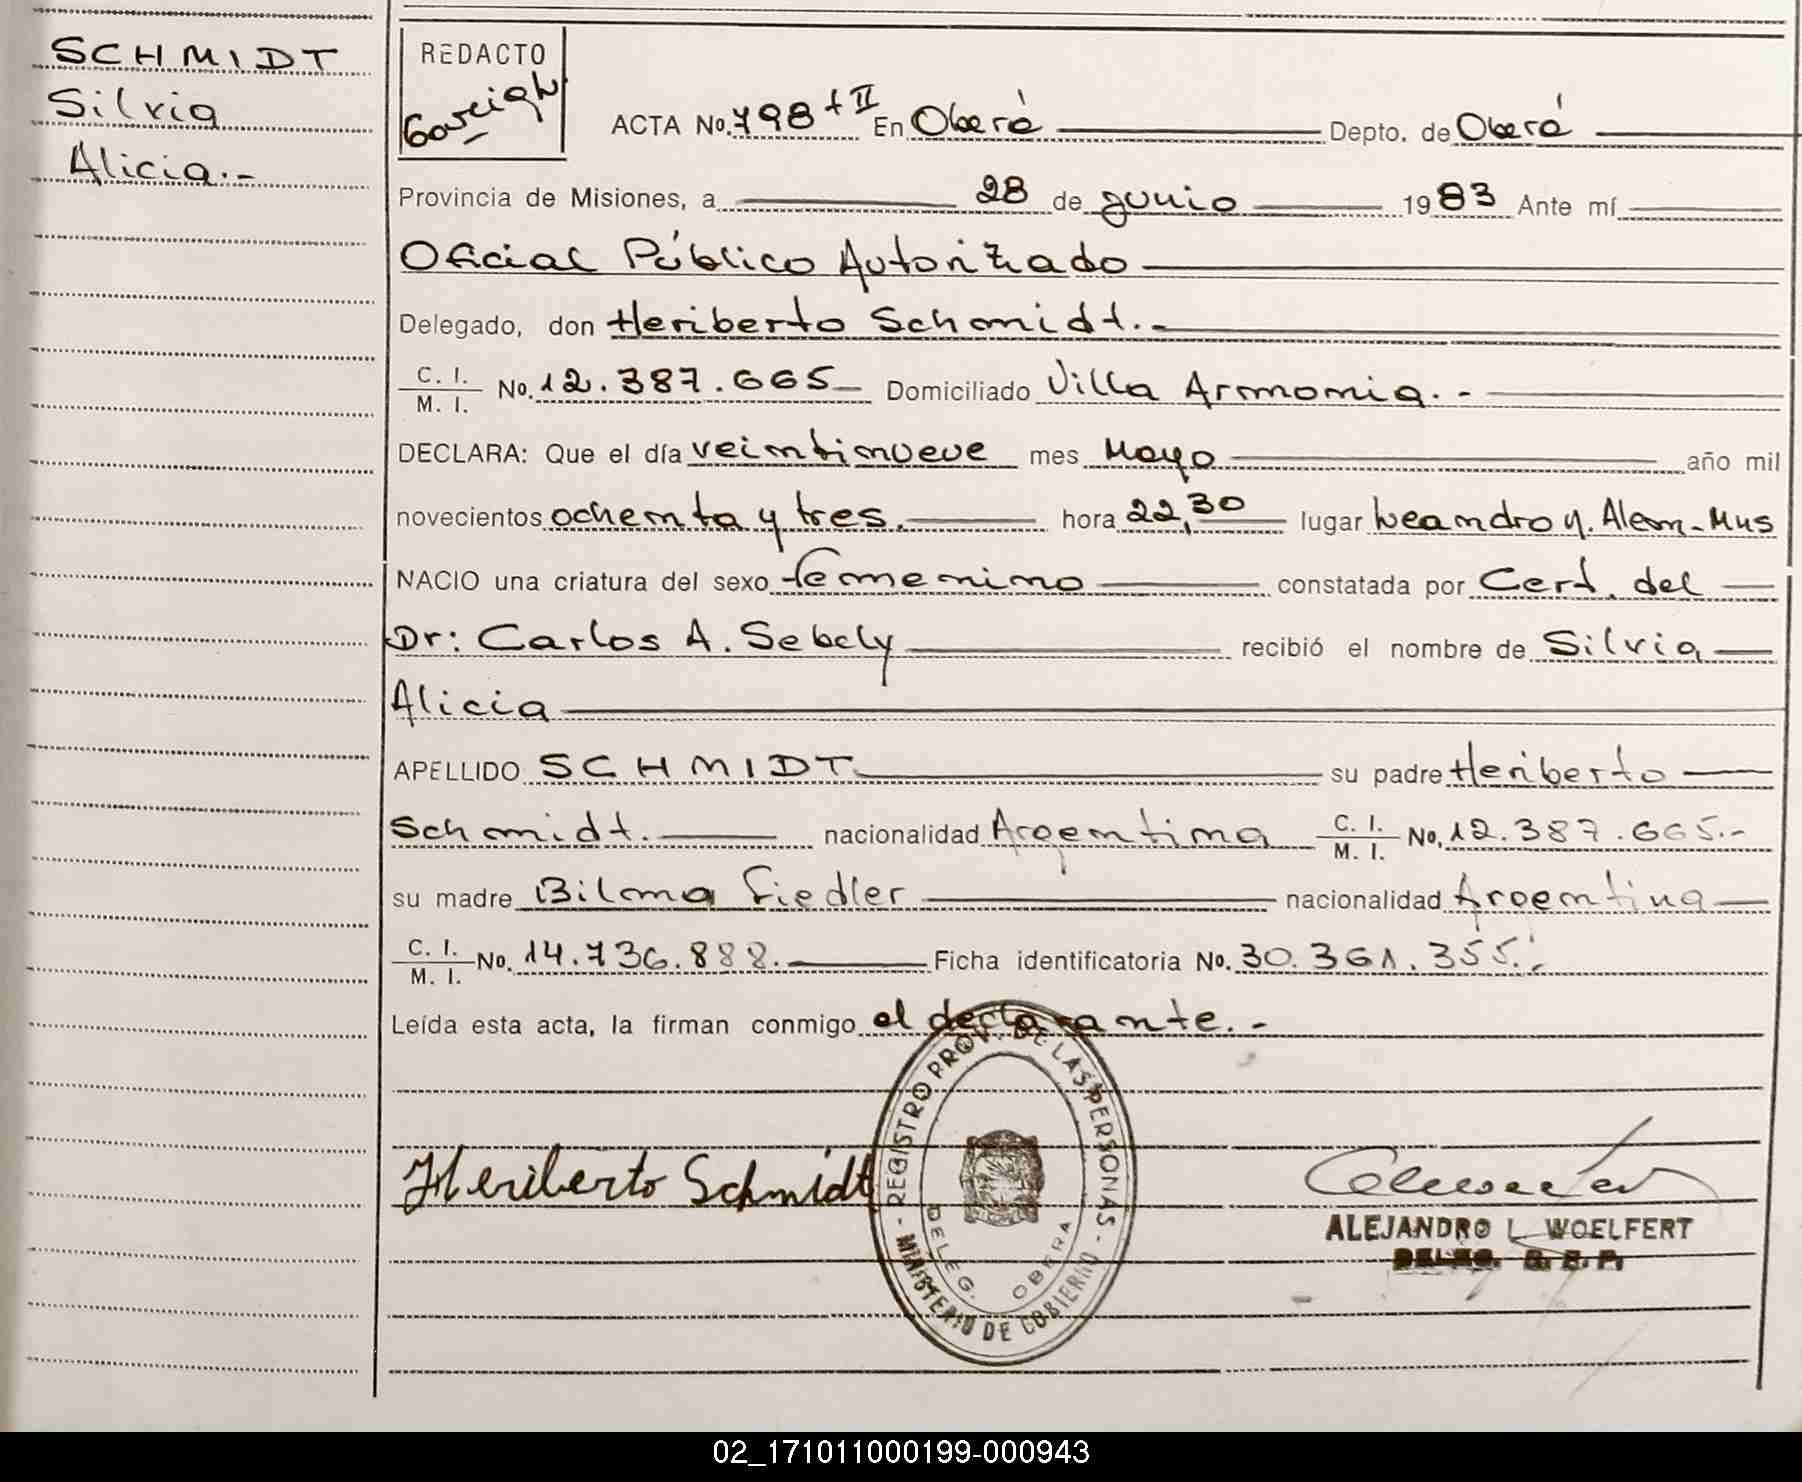 SCHMIDT
Silvia
Alicia.-
REDACTO
ACTA No. 798 t II En Oberá Depto. de Oberá
Provincia de Misiones, a 28 de junio 1983 Ante mí
Oficial Público Autorizado
Delegado, don Heriberto Schmidt.-
C. I. / M. I. No. 12.387.665 Domiciliado Villa Armonia.-
DECLARA: Que el día veintinueve mes Mayo año mil
novecientos ochenta y tres. hora 22,30 lugar Leandro N. Alem-Mns
NACIO una criatura del sexo femenino constatada por Cert. del
Dr: Carlos A. Sebely recibió el nombre de Silvia
Alicia
APELLIDO SCHMIDT su padre Heriberto
Schmidt. nacionalidad Argentina C. I. / M. I. No. 12.387.665.-
su madre Bilma Fiedler nacionalidad Argentina
C. I. / M. I. No. 14.736.888. Ficha identificatoria No. 30.361.355.-
Leída esta acta, la firman conmigo el declarante.-
REGISTRO PROV. DE LAS PERSONAS - MINISTERIO DE GOBIERNO -
DELEG. OBERA
Heriberto Schmidt
ALEJANDRO L. WOELFERT
02_171011000199-000943